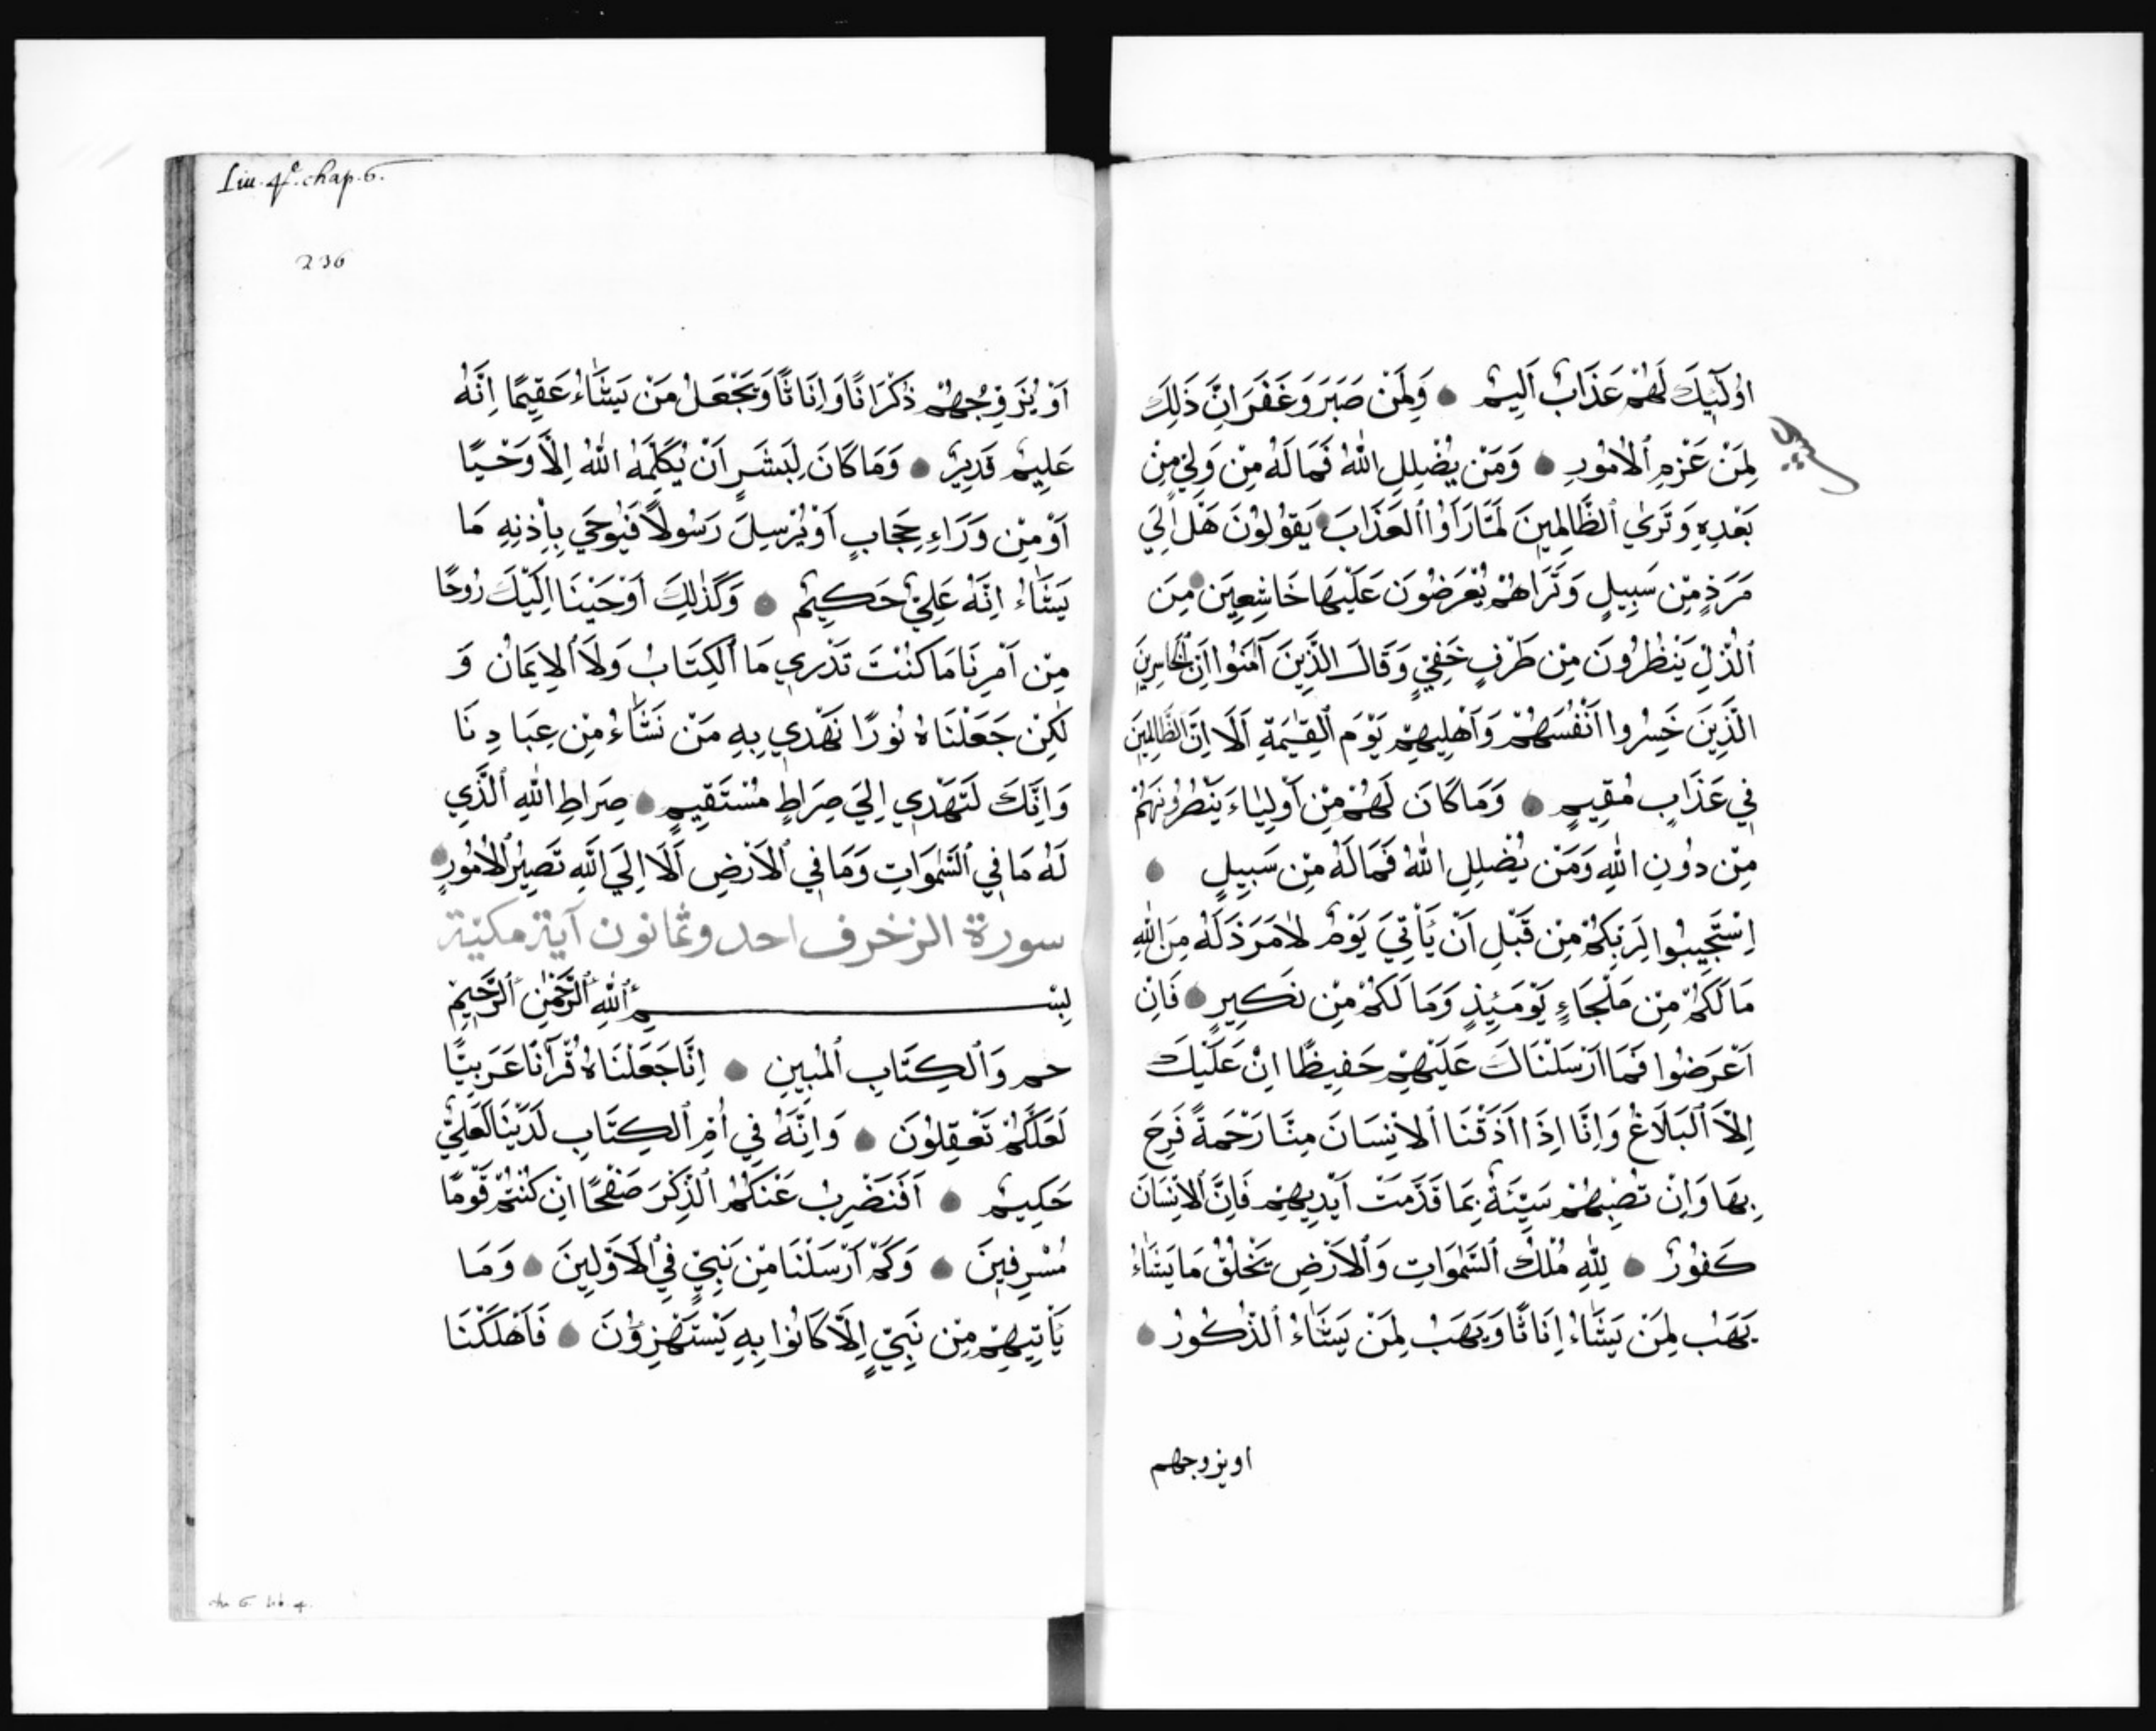 اُولَٓئِكَ لَهُمْ عَذَابٌ اَلِيمٌ وَلَمَنْ صَبَرَ وَغَفَرَ اِنَّ ذَلِكَ
لَمِنْ عَزْمِ ٱلْاُمُورِ وَمَنْ يُضْلِلِ اللّٰهُ فَمَا لَهُ مِنْ وَلِيٍّ مِنْ
بَعْدِهِ وَتَرَى ٱلظَّالِمِينَ لَمَّا رَاَوُا ٱلْعَذَابَ يَقُولُونَ هَلْ اِلَي
مَرَدٍّ مِّنْ سَبِيلٍ وَتَرَاهُمْ يُعْرَضُونَ عَلَيْهَا خَاشِعِينَ مِنَ
ٱلذُّلِّ يَنْظُرُونَ مِنْ طَرْفٍ خَفِيٍّ وَقَالَ الَّذِينَ آمَنُوا اِنَّ ٱلْخَاسِرِينَ
الَّذِينَ خَسِرُوا اَنْفُسَهُمْ وَاَهْلِيهِمْ يَوْمَ ٱلْقِيٰمَةِ اَلَا اِنَّ ٱلظَّالِمِينَ
فِي عَذَابٍ مُقِيمٍ وَمَا كَانَ لَهُمْ مِنْ اَوْلِيَاءَ يَنْصُرُونَهُمْ
مِنْ دُونِ اللّٰهِ وَمَنْ يُضْلِلِ اللّٰهُ فَمَا لَهُ مِنْ سَبِيلٍ
اِسْتَجِيبُوا لِرَبِّكُمْ مِنْ قَبْلِ اَنْ يَأْتِيَ يَوْمٌ لَا مَرَدَّ لَهُ مِنَ اللّٰهِ
مَا لَكُمْ مِنْ مَلْجَاءٍ يَوْمَئِذٍ وَمَا لَكُمْ مِنْ نَكِيرٍ فَاِنْ
اَعْرَضُوا فَمَا اَرْسَلْنَاكَ عَلَيْهِمْ حَفِيظًا اِنْ عَلَيْكَ
اِلَّا ٱلْبَلَاغُ وَاِنَّا اِذَا اَذَقْنَا ٱلْاِنْسَانَ مِنَّا رَحْمَةً فَرِحَ
بِهَا وَاِنْ تُصِبْهُمْ سَيِّئَةٌ بِمَا قَدَّمَتْ اَيْدِيهِمْ فَاِنَّ ٱلْاِنْسَانَ
كَفُورٌ لِلّٰهِ مُلْكُ ٱلسَّمٰوَاتِ وَٱلْاَرْضِ يَخْلُقُ مَا يَشَاءُ
يَهَبُ لِمَنْ يَشَاءُ اِنَاثًا وَيَهَبُ لِمَنْ يَشَاءُ ٱلذُّكُورَ
او يزوجهم
Liu. 4e. chap. 6.
236
اَوْ يُزَوِّجُهُمْ ذُكْرَانًا وَاِنَاثًا وَيَجْعَلُ مَنْ يَشَاءُ عَقِيمًا اِنَّهُ
عَلِيمٌ قَدِيرٌ وَمَا كَانَ لِبَشَرٍ اَنْ يُكَلِّمَهُ اللّٰهُ اِلَّا وَحْيًا
اَوْ مِنْ وَرَاءِ حِجَابٍ اَوْ يُرْسِلَ رَسُولًا فَيُوحِيَ بِاِذْنِهِ مَا
يَشَاءُ اِنَّهُ عَلِيٌّ حَكِيمٌ وَكَذٰلِكَ اَوْحَيْنَا اِلَيْكَ رُوحًا
مِنْ اَمْرِنَا مَا كُنْتَ تَدْرِي مَا ٱلْكِتَابُ وَلَا ٱلْاِيمَانُ وَ
لٰكِنْ جَعَلْنَاهُ نُورًا نَهْدِي بِهِ مَنْ نَشَاءُ مِنْ عِبَادِنَا
وَاِنَّكَ لَتَهْدِي اِلَيَ صِرَاطٍ مُسْتَقِيمٍ صِرَاطِ اللّٰهِ ٱلَّذِي
لَهُ مَا فِي ٱلسَّمٰوَاتِ وَمَا فِي ٱلْاَرْضِ اَلَا اِلَيَ اللّٰهِ تَصِيرُ ٱلْاُمُورُ
سورة الزخرف احد وثمانون آية مكيّة
بِسْمِ ٱللّٰهِ ٱلرَّحْمٰنِ ٱلرَّحِيمِ
حم وَٱلْكِتَابِ ٱلْمُبِينِ اِنَّا جَعَلْنَاهُ قُرْآنًا عَرَبِيًّا
لَعَلَّكُمْ تَعْقِلُونَ وَاِنَّهُ فِي اُمِّ ٱلْكِتَابِ لَدَيْنَا لَعَلِيٌّ
حَكِيمٌ اَفَنَضْرِبُ عَنْكُمُ ٱلذِّكْرَ صَفْحًا اِنْ كُنْتُمْ قَوْمًا
مُسْرِفِينَ وَكَمْ اَرْسَلْنَا مِنْ نَبِيٍّ فِي ٱلْاَوَّلِينَ وَمَا
يَأْتِيهِمْ مِنْ نَبِيٍّ اِلَّا كَانُوا بِهِ يَسْتَهْزِؤُنَ فَاَهْلَكْنَا
ch. 6. lib. 4.